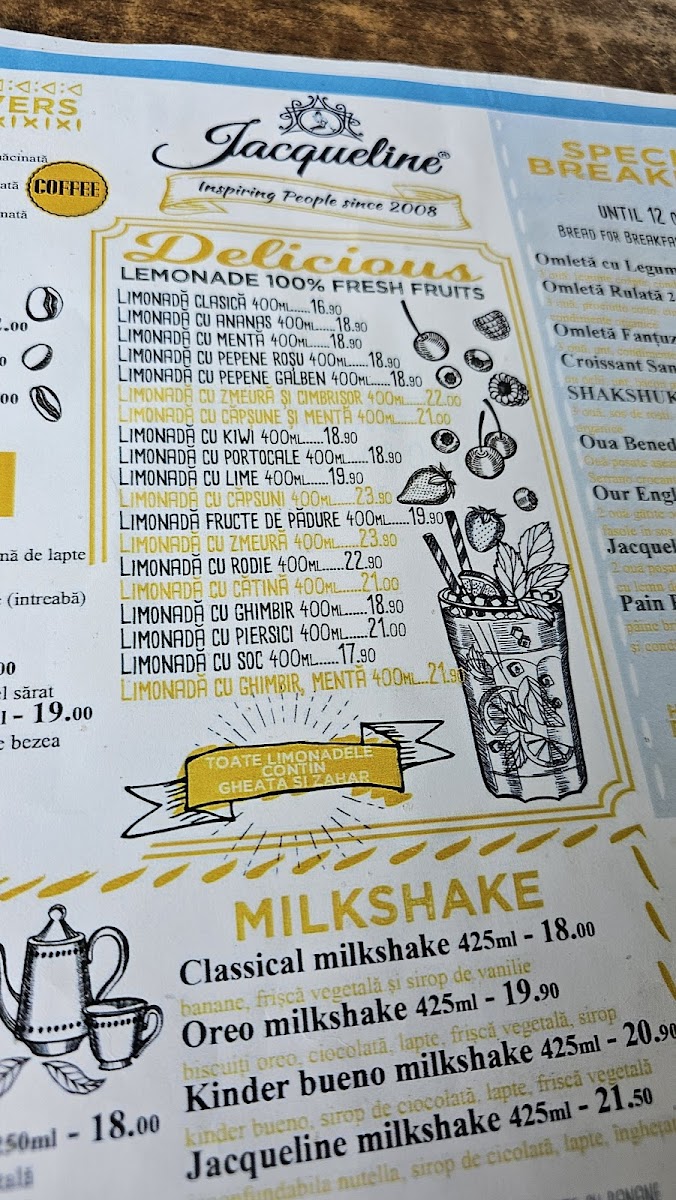 VERS
COFFEE
nată
.00
00
nă de lapte
(intreabă)
00
el sărat
- 19.00
bezea
250ml - 18.00
Jacqueline®
Inspiring People since 2008
Delicious
LEMONADE 100% FRESH FRUITS
LIMONADĂ CLASICĂ 400ML......16.90
LIMONADĂ CU ANANAS 400ML......18.90
LIMONADĂ CU MENTĂ 400ML......18.90
LIMONADĂ CU PEPENE ROȘU 400ML......18.90
LIMONADĂ CU PEPENE GALBEN 400ML......18.90
LIMONADĂ CU ZMEURĂ ȘI CIMBRIȘOR 400ML......22.00
LIMONADĂ CU CĂPȘUNE ȘI MENTĂ 400ML......21.00
LIMONADĂ CU KIWI 400ML......18.90
LIMONADĂ CU PORTOCALE 400ML......18.90
LIMONADĂ CU LIME 400ML......19.90
LIMONADĂ CU CĂPȘUNI 400ML......23.90
LIMONADĂ FRUCTE DE PĂDURE 400ML......19.90
LIMONADĂ CU ZMEURĂ 400ML......23.90
LIMONADĂ CU RODIE 400ML......22.90
LIMONADĂ CU CĂTINĂ 400ML......21.00
LIMONADĂ CU GHIMBIR 400ML......18.90
LIMONADĂ CU PIERSICI 400ML......21.00
LIMONADĂ CU SOC 400ML......17.90
LIMONADĂ CU GHIMBIR, MENTĂ 400ML...21.90
TOATE LIMONADELE
CONȚIN
GHEAȚĂ ȘI ZAHĂR
MILKSHAKE
Classical milkshake 425ml - 18.00
banane, frișcă vegetală și sirop de vanilie
Oreo milkshake 425ml - 19.90
biscuiți oreo, ciocolată, lapte, frișcă vegetală, sirop
Kinder bueno milkshake 425ml - 20.90
kinder bueno, sirop de ciocolată, lapte, frișcă vegetală
Jacqueline milkshake 425ml - 21.50
nutella, sirop de cicolată, lapte,
SPECI
BREAK
UNTIL 12
BREAD FOR BREAKFA
Omletă cu Legum
Omletă Rulată 2
Omletă Fanțuz
Croissant San
SHAKSHUK
Oua Bened
Our Engl
Jacquel
Pain